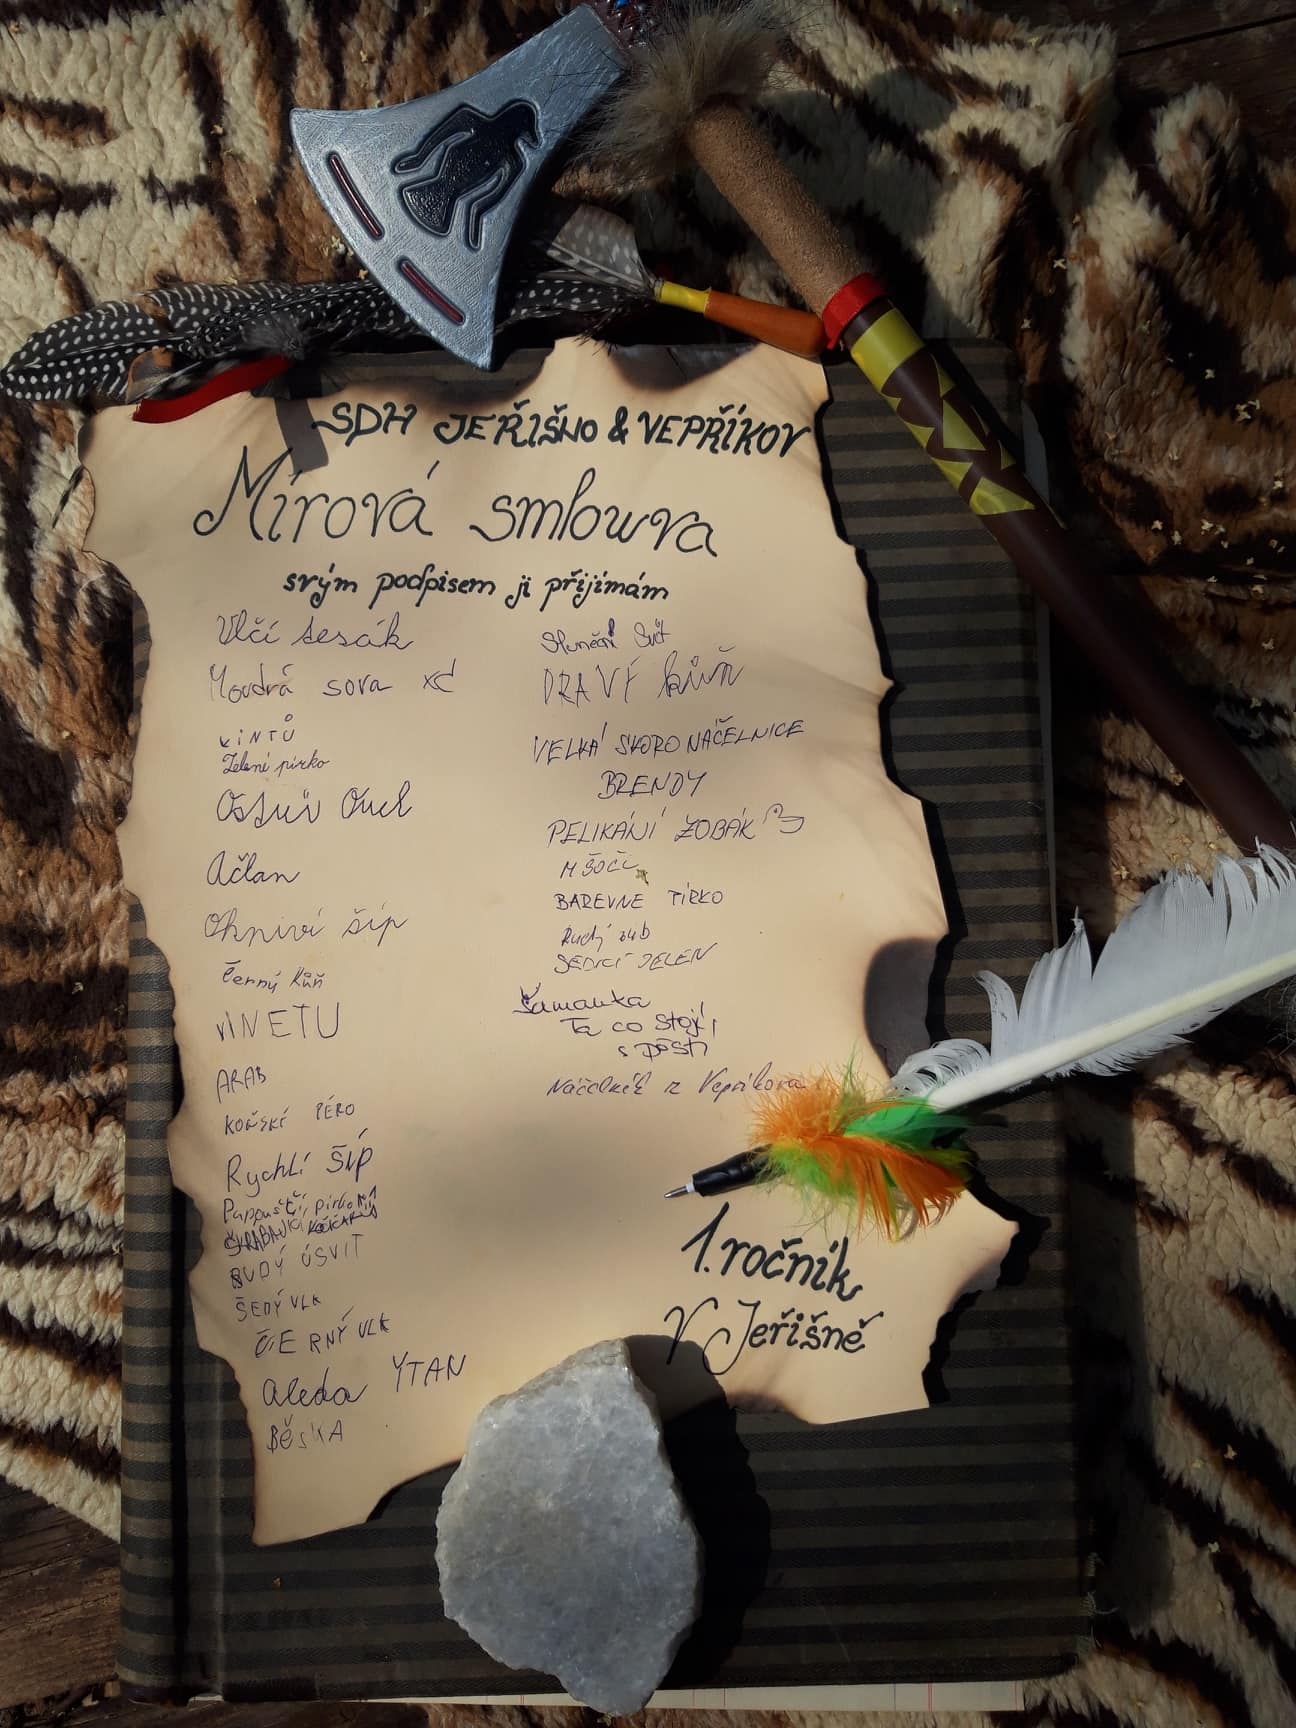 SDH JEŘIŠNO & VEPŘÍKOV
Mírová smlouva
svým podpisem ji přijímám
Vlčí tesák
Moudrá sova xd
VINTŮ
Zelené pírko
Ostrův
Ačlan
Ohniví šíp
Černý Kůň
VINETU
ARAB
KOŇSKÍ PÉRO
Rychlí ŠÍP
Papouščí
RUDÝ ÚSVIT
ŠEDÝ VLK
ČERNÝ VLK
aleda YTAN
BěsKA
Sluneční Svit
DRAVÝ kůň
VELKÁ SKORO NÁČELNICE
BRENDY
PELIKÁNÍ ZOBÁK
MŠOČI
BAREVNE PÍRKO
Rudý zub
SEDICÍ JELEN
Šamanka
Ta co stojí
s pěstí
Náčelník z Vepříkova
1. ročník
V Jeřišně